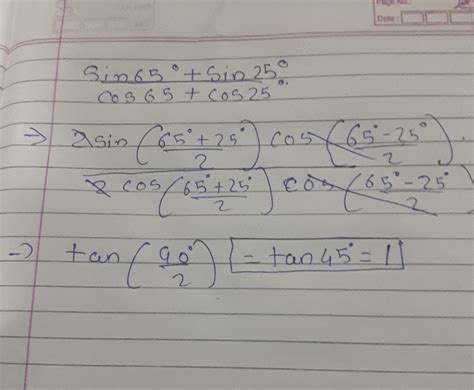 Page No.:
Date:
Sin65° + Sin25°
cos65 + cos25°
→ 2sin(65°+25°/2) cos(65°-25°/2)
2 cos(65°+25°/2) cos(65°-25°/2)
→ tan(90°/2) = tan45° = 1